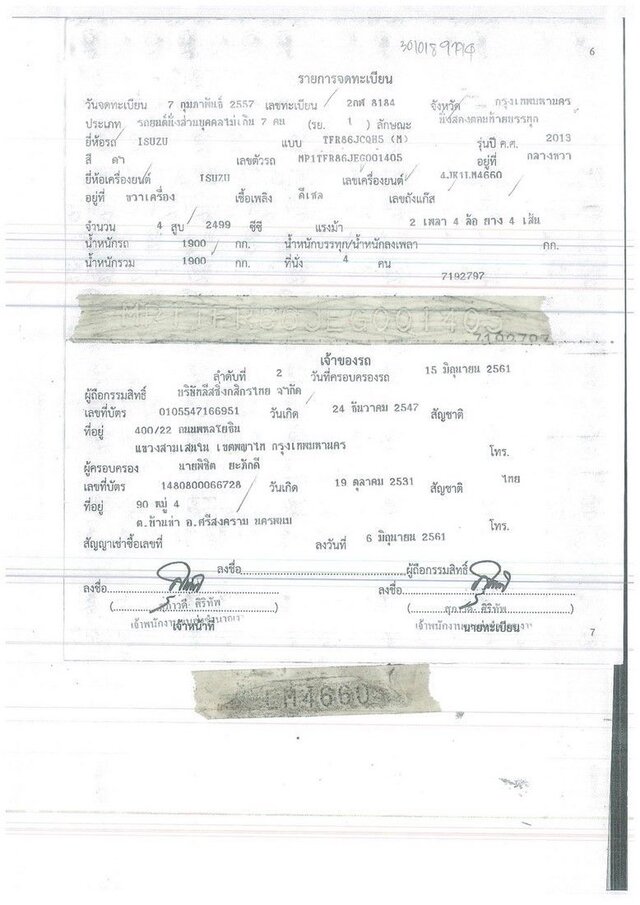 6
รายการจดทะเบียน
วันจดทะเบียน 7 กุมภาพันธ์ 2557 เลขทะเบียน 2กศ 8184 จังหวัด กรุงเทพมหานคร
ประเภท รถยนต์นั่งส่วนบุคคลไม่เกิน 7 คน (รย. 1 ) ลักษณะ นั่งสองตอนท้ายบรรทุก
ยี่ห้อรถ ISUZU แบบ TFR86JCQH5 (M) รุ่นปี ค.ศ. 2013
สี ดำ เลขตัวรถ MP1TFR86JEG001405 อยู่ที่ กลางขวา
ยี่ห้อเครื่องยนต์ ISUZU เลขเครื่องยนต์ 4JK1LM4660
อยู่ที่ ขวาเครื่อง เชื้อเพลิง ดีเซล เลขถังแก๊ส
จำนวน 4 สูบ 2499 ซีซี แรงม้า 2 เพลา 4 ล้อ ยาง 4 เส้น
น้ำหนักรถ 1900 กก. น้ำหนักบรรทุก/น้ำหนักลงเพลา กก.
น้ำหนักรวม 1900 กก. ที่นั่ง 4 คน
7192797
MP1TFR86JEG001405
7192797
เจ้าของรถ
ลำดับที่ 2 วันที่ครอบครองรถ 15 มิถุนายน 2561
ผู้ถือกรรมสิทธิ์ บริษัทลีสซิ่งกสิกรไทย จำกัด
เลขที่บัตร 0105547166951 วันเกิด 24 ธันวาคม 2547 สัญชาติ
ที่อยู่ 400/22 ถนนพหลโยธิน
แขวงสามเสนใน เขตพญาไท กรุงเทพมหานคร โทร.
ผู้ครอบครอง นายพิชิต ยะภักดี
เลขที่บัตร 1480800066728 วันเกิด 19 ตุลาคม 2531 สัญชาติ ไทย
ที่อยู่ 90 หมู่ 4
ต.บ้านข่า อ.ศรีสงคราม นครพนม โทร.
สัญญาเช่าซื้อเลขที่ ลงวันที่ 6 มิถุนายน 2561
ลงชื่อ ผู้ถือกรรมสิทธิ์
ลงชื่อ ลงชื่อ
( สุภาวดี ศิริทัพ ) ( สุภาวดี ศิริทัพ )
เจ้าหน้าที่ นายทะเบียน
7
LM4660